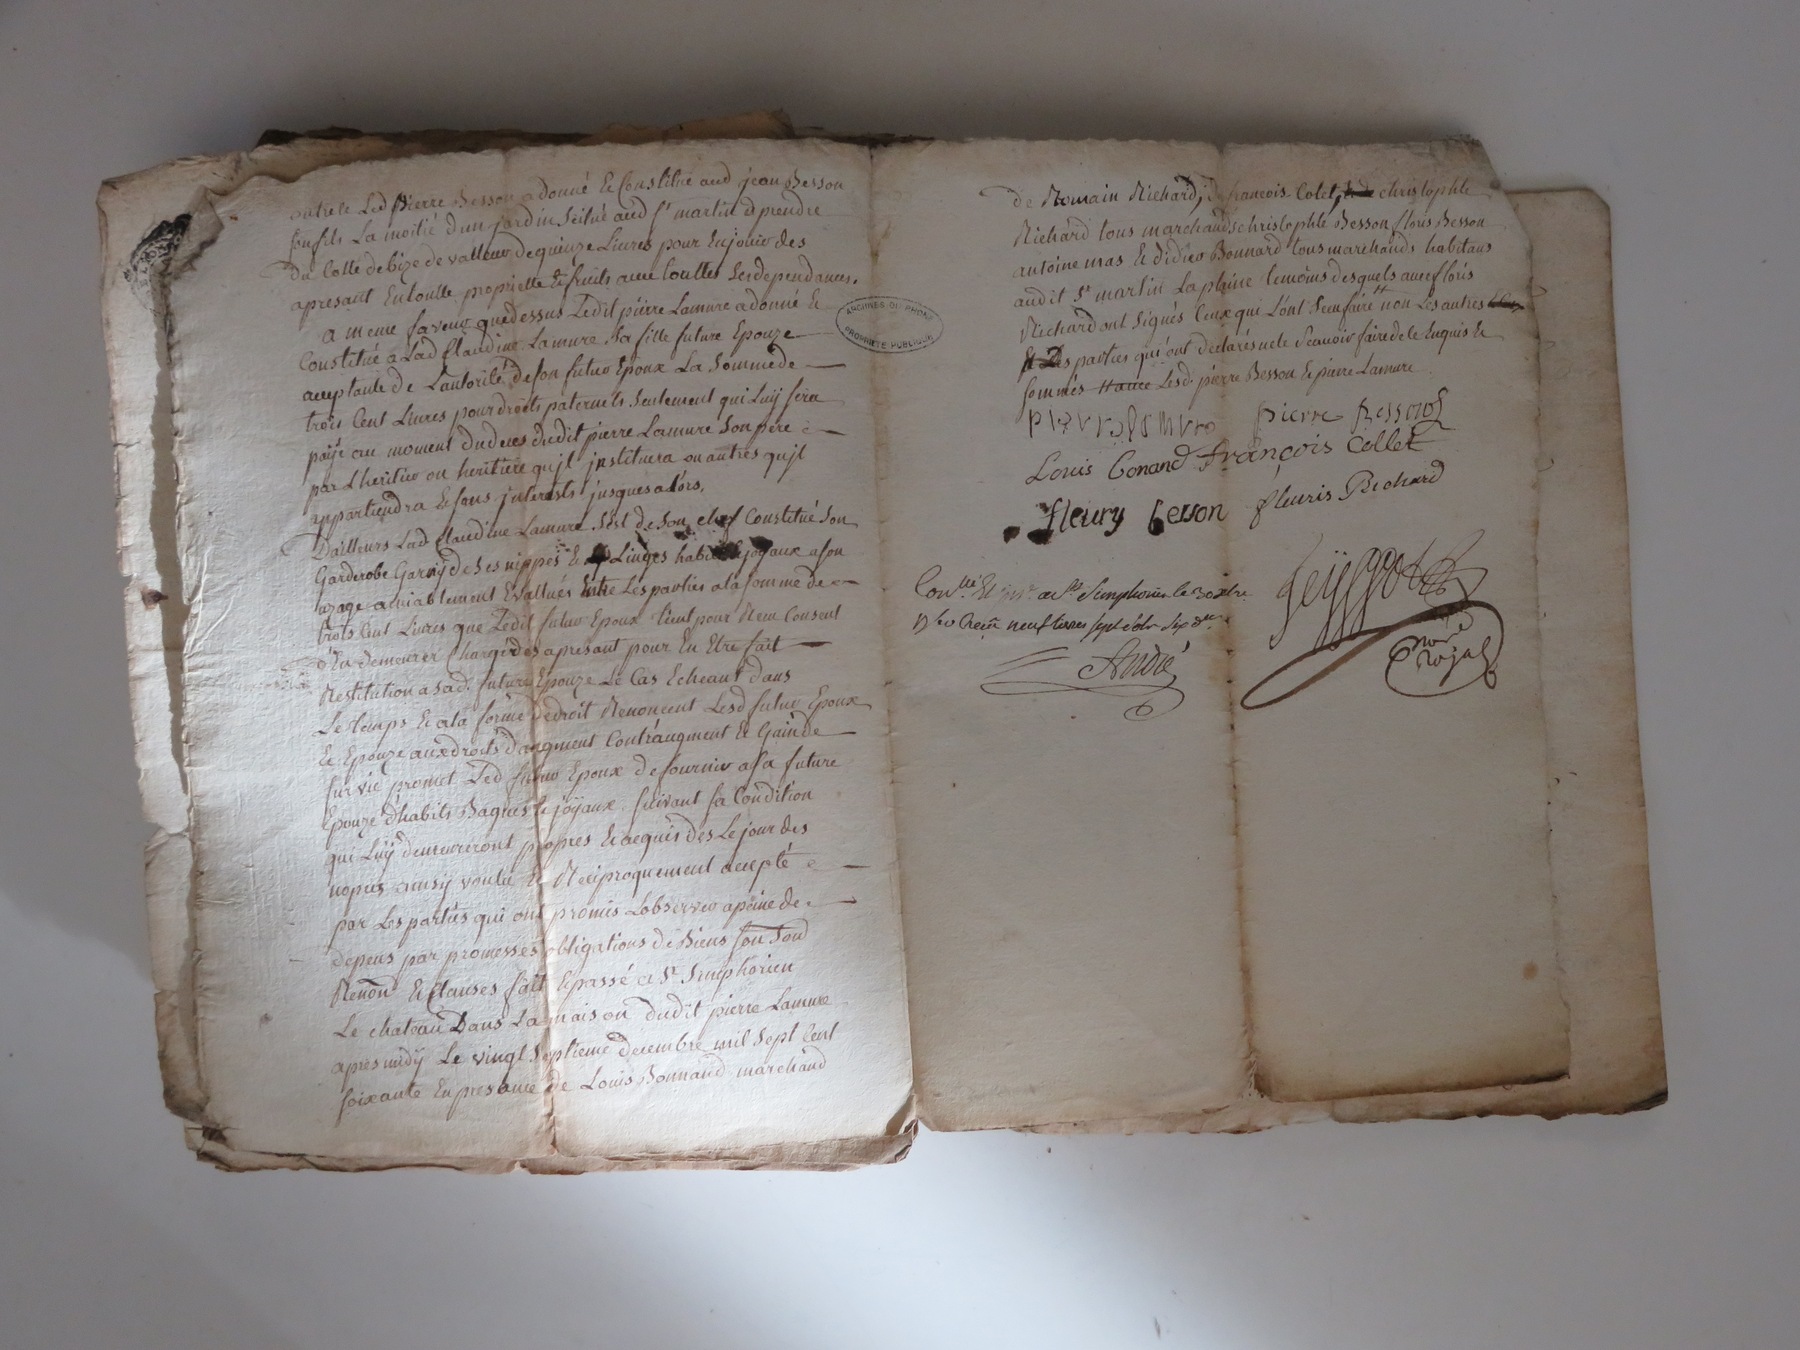 outre le Led pierre Besson a donné Et Constitué aud jean Besson
son fils La moitié d'un jardin scitué aud St martin a prendre
du Cotté de bize de valleur de quinze Livres pour En jouir des
apresant En toutte proprietté Et fruits avec touttes ses dependances.
a meme faveur que dessus Ledit pierre Lamure a donné Et
Constitué a Lad Claudine Lamure sa fille future Epouze
acceptante de L'autorité de son futur Epoux La Somme de
trois Cent Livres pour droits paternels seulement qui Luÿ sera
païé au moment du deces dudit pierre Lamure Son pere
par L'heritier ou heritiere qu'jl jnstituera ou autres qu'jl
appartiendra Et sans jnterests jusques alors.
D'ailleurs Lad Claudine Lamure s'est de son chef Constitué Son
Garderobe Garnÿ de ses nippes Et Linges habits Et joyaux a son
uzage amiablement Evallués Entre Les parties a la somme de
trois Cent Livres que Ledit futur Epoux tient pour Reru Consent
d'En demeurer Chargé des apresant pour En Etre fait
Restitution a sad. future Epouze Le Cas Echeant dans
Le temps Et a la forme de droit Renoncent Lesd futur Epoux
Et Epouze aux droits d'augment Contr'augment Et Gain de
survie promet Led futur Epoux de fournir a sa future
Epouze d'habits Bagues Et joÿaux suivant sa Condition
qui Luÿ demeureront propres Et acquis des Le jour des
nopces ainsÿ voulu Et Reciproquement accepté
par Les parties qui ont promis L'observer a peine de
depens par promesses obligations de Biens
Renon Et Clauses fait Et passé a St Simphorien
Le chateau Dans La maison dudit pierre Lamure
apres midÿ Le vingt Septieme decembre mil Sept Cent
soixante En presance de Louis Bonnand marchand
de Romain Richard, de francois Colet, christophle
Richard tous marchands christophle Besson floris Besson
antoine mas Et didier Bonnard tous marchands habitans
audit St martin La plaine temoins desquels avec floris
Richard ont signés Ceux qui L'ont sceu faire non Les autres
Et Les parties qui ont declarés ne le Scavoir faire de ce Enquis Et
sommés Lesd. pierre Besson Et pierre Lamure
pierre lamure pierre Besson
Louis Bonand françois Collet
fleury besson fleuris Richard
Con.lle Et a St Simphorien le 30 xbre
1760 Receu neuf livres sept sols six drs
André
notre
Royal
ARCHIVES DU RHONE
PROPRIÉTÉ PUBLIQUE